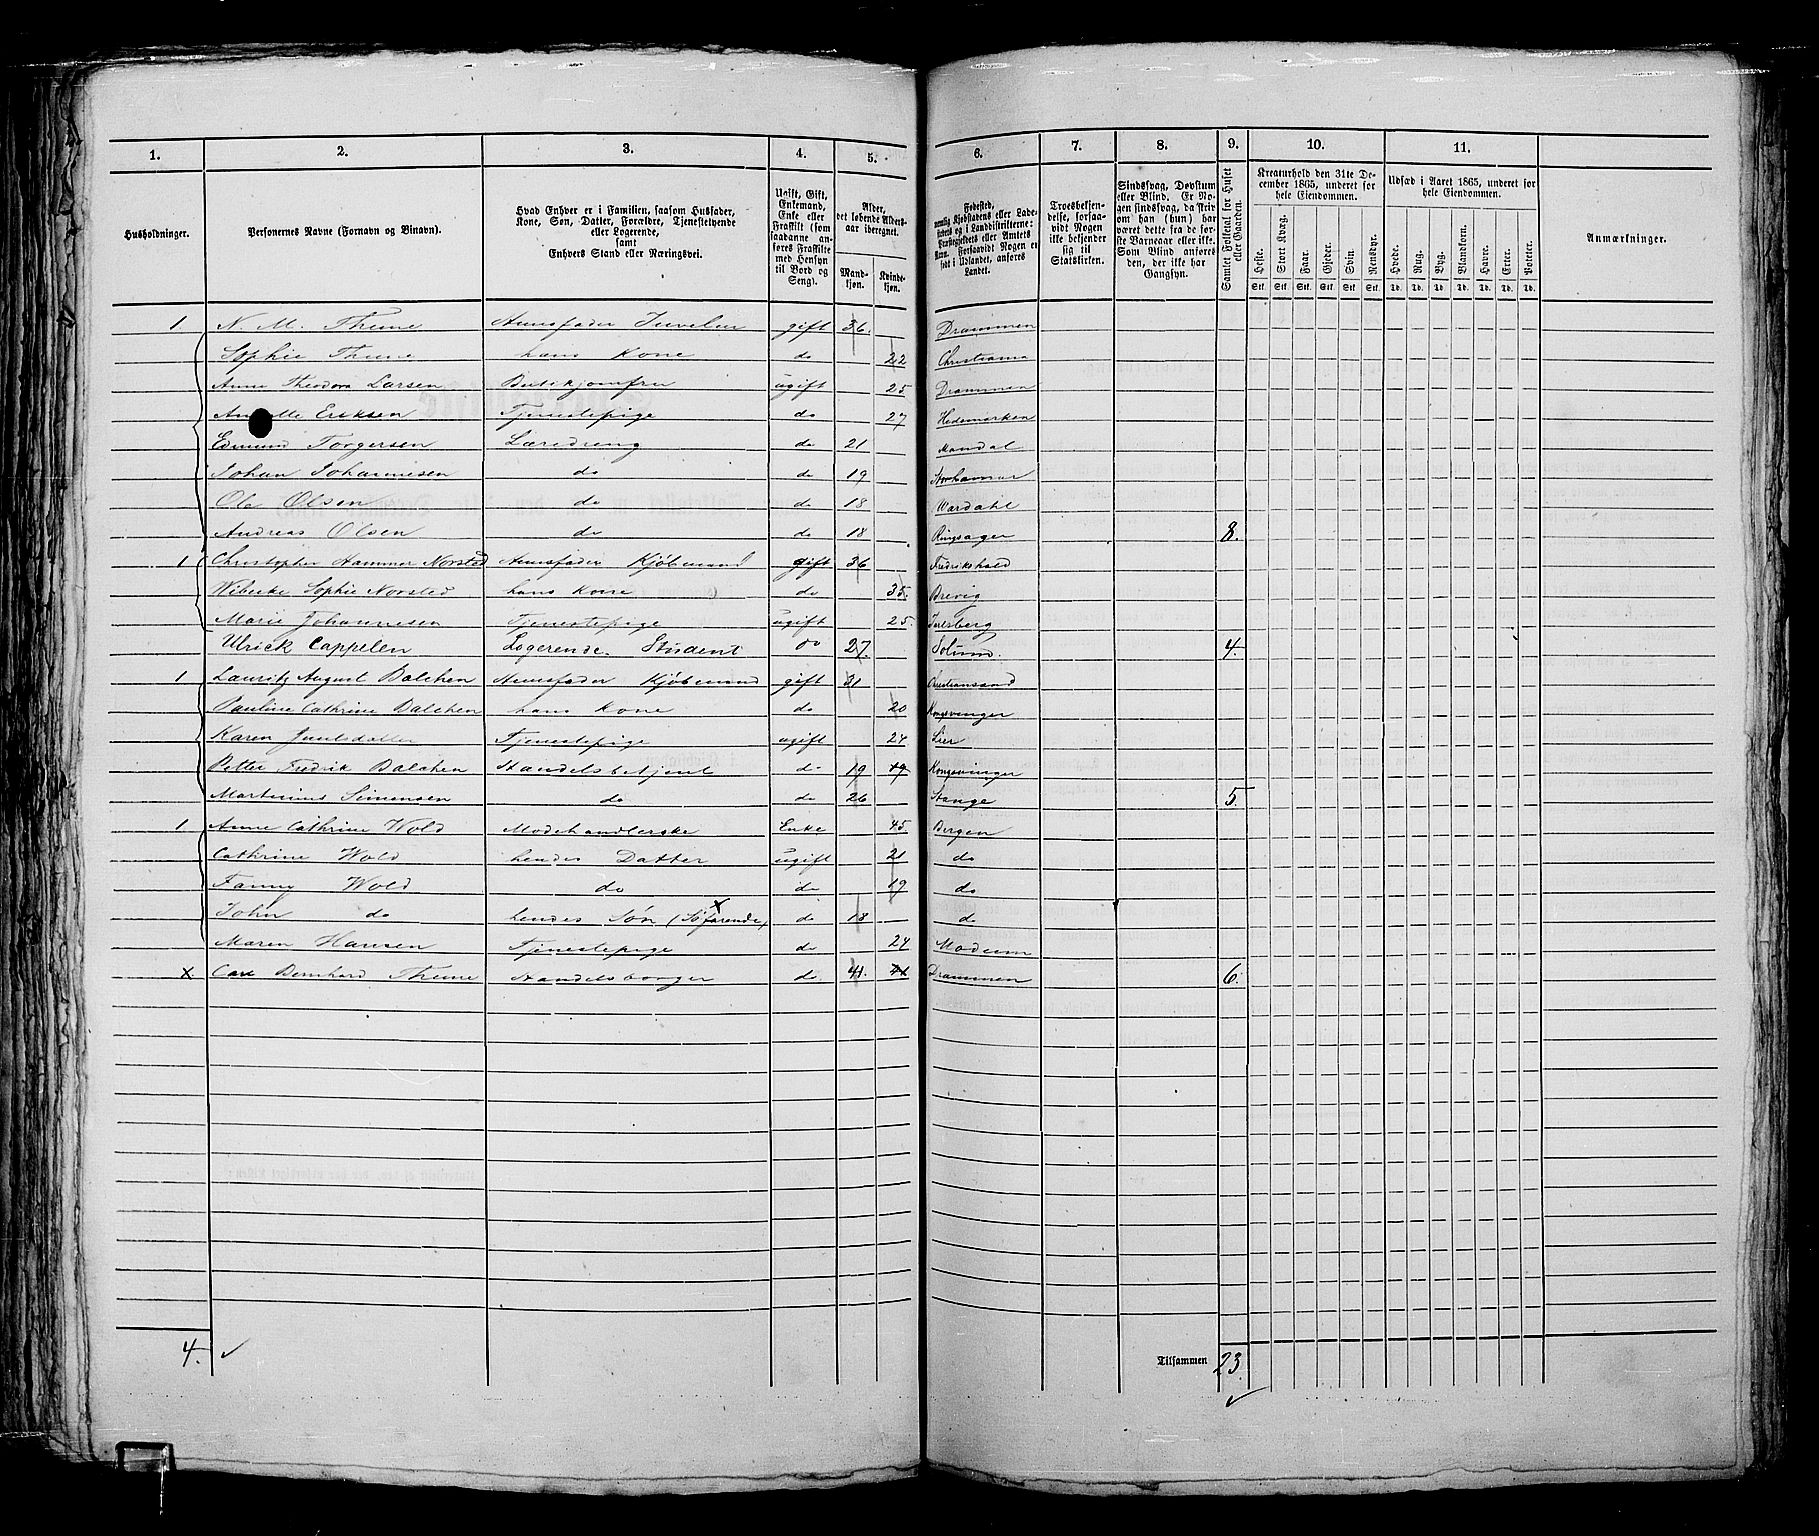 1. 2. 3. 4. 5. 6. 7. 8. 9. 10. 11.
Husholdninger.
Personernes Navne (Fornavn og Binavn).
Hvad Enhver er i Familien, saasom Husfader,
Kone, Søn, Datter, Forældre, Tjenestetyende
eller Logerende,
samt
Enhvers Stand eller Næringsvei.
Ugift, Gift,
Enkemand,
Enke eller
Fraskilt (som
saadanne anføres Fraskilte
med Hensyn
til Bord og
Seng).
Alder,
det løbende Aldersaar iberegnet.
Mandkjøn.
Kvindekjøn.
Fødested,
nemlig Kjøbstadens eller Ladestedets og i Landdistrikterne:
Præstegjeldets eller Amtets
Navn. Forsaavidt Nogen er
født i Udlandet, anføres
Landet.
Troesbekjendelse, forsaavidt Nogen
ikke bekjender
sig til
Statskirken.
Sindssvag, Døvstum
eller Blind. Er Nogen sindssvag, da skriv
om han (hun) har
været dette fra de første Barneaar eller ikke.
Som Blind anføres
den, der ikke har
Gangsyn.
Samlet Folketal for Huset
eller Gaarden.
Kreaturhold den 31te December 1865, underet for
hele Eiendommen.
Heste. Stort Kvæg. Faar. Gjeder. Svin. Rensdyr.
Stk. Stk. Stk. Stk. Stk. Stk.
Udsæd i Aaret 1865, underet for
hele Eiendommen.
Hvede. Rug. Byg. Blandkorn. Havre. Erter. Poteter.
Td. Td. Td. Td. Td. Td. Td.
Anmærkninger.
1. N. M. Thune Huusfader Juveler gift 36. Drammen
Sophie Thune hans Kone do 22 Christiania
Anne Theodora Larsen Butikjomfru ugift 25 Drammen
Eriksen Tjenestepige do 27 Hedemarken
Edmund Torgersen Læredreng do 21 Mandal
Johan Johannesen do do 19 Storhammer
Ole Olsen do do 18 Wardahl
Andreas Olsen do do 18 Ringsager 8.
1 Christopher Hammer Norsted Huusfader Kjøbmand gift 36 Fredrikshald
Wibecke Sophie Norsted hans Kone do 35. Brevig
Marie Johannesen Tjenestepige ugift 25. Jarlsberg
Ulrick Cappelen Logerende. Student do 27. Solum. 4.
1 Lauritz August Balchen Huusfader Kjøbmand gift 31 Christiansand
Pauline Cathrine Balchen hans Kone do 20 Kongsvinger
Karen Tjenestepige ugift 24 Lier
Petter Fredrik Balchen Handelsbetjent do 19 19 Kongsvinger
Martinius Simensen do do 26 Stange 5.
1 Anne Cathrine Wold Modehandlerske Enke 45 Bergen
Cathrine Wold hendes Datter ugift 21 do
Fanny Wold do do 19 do
John do hendes Søn (Søfarende) do 18 do
Maren Hansen Tjenestepige do 24 Modum
x Carl Bernhard Thune Handelsborger do. 41. 41 Drammen 6.
4. ✓
Tilsammen 23.
✓